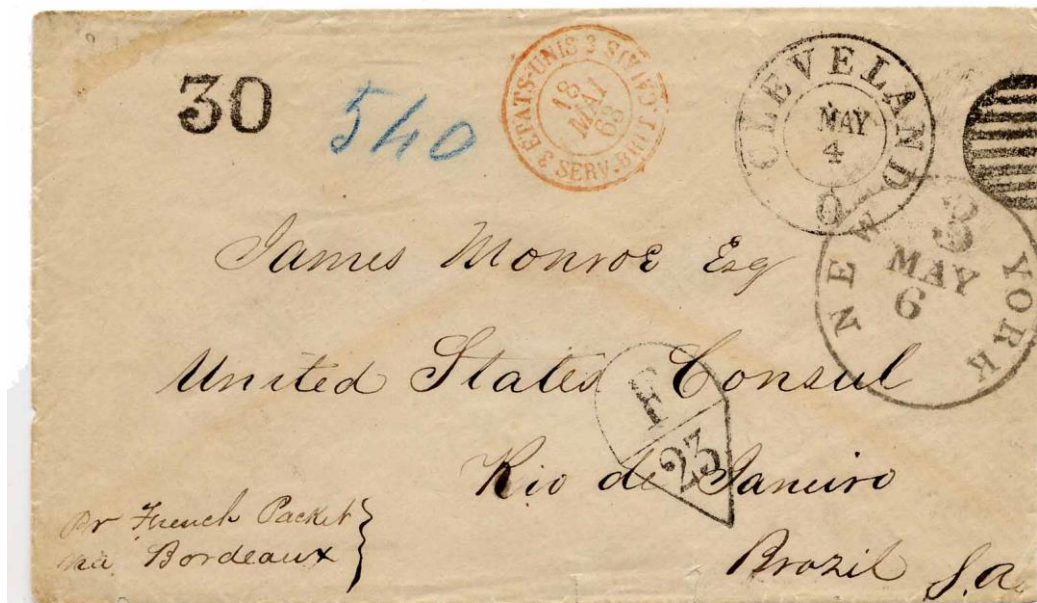 30
540
3 ETATS-UNIS 3 SERV. BRIT. CALAIS
18
MAI
63
CLEVELAND O
MAY
4
NEW YORK
3
MAY
6
James Monroe Esq
United States Consul
F
23
Rio de Janeiro
Brazil S.a.
Pr French Packet
via Bordeaux